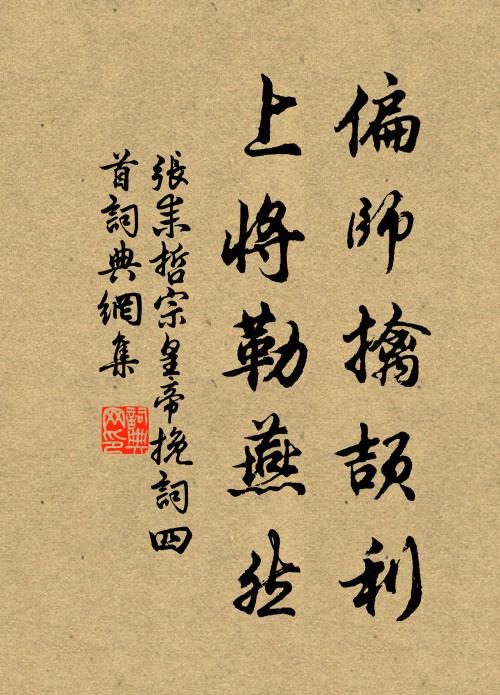 偏師擒頡利
上將勒燕然
張耒哲宗皇帝挽詞四
首詞典網集
詞典
网印